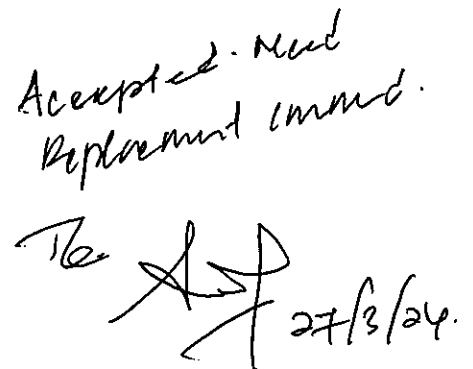 Accexpted. Need
Replacement immed.
27/3/24.